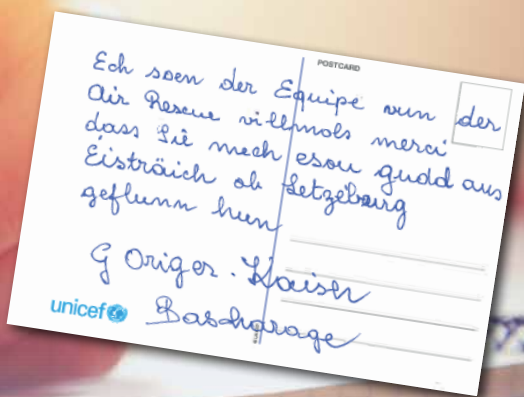 POSTCARD
Ech soen der Equipe vun der
Air Rescue villmols merci
dass Sie mech esou gudd aus
Eisträich ob Letzebuurg
geflunn hun
G Origer-Kaiser
Bascharage
unicef